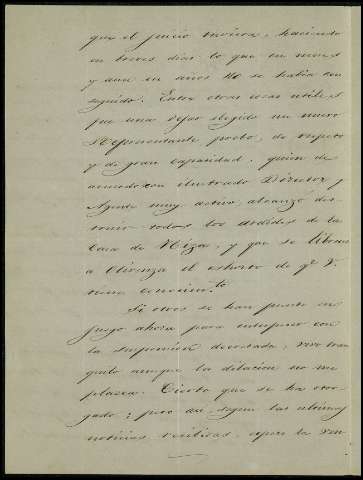 que el juicio viviera, haciendo
en breves dias lo que en meses
y aun en años no se habia con
seguido. Entre otras cosas utiles
fue una dejar elegido un nuevo
Representante probo, de respeto
y de gran capacidad, quien de
acuerdo con ilustrado Director y
Agente muy activo alcanzó des-
truir todos los ardides de la
Casa de Niza, y que se librase
a Cirenza el exhorto de qe. V.
tiene conocimto.
Si otros se han puesto en
juego ahora para interponer con
la suspension decretada, vivo tran
quilo aunque la dilacion no me
plazca. Cierto que se ha otor-
gado; pero así, segun las ultimas
noticias veridicas, espero la